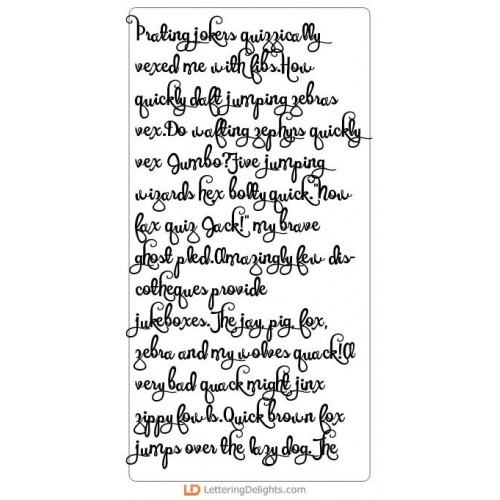 Prating jokers quizzically
vexed me with fibs.How
quickly daft jumping zebras
vex.Do wafting zephyrs quickly
vex Jumbo?Five jumping
wizards hex bolty quick."Now
fax quiz Jack!" my brave
ghost pled.Amazingly few dis-
cotheques provide
jukeboxes.The jay, pig, fox,
zebra and my wolves quack!A
very bad quack might jinx
zippy fowls.Quick brown fox
jumps over the lazy dog.The
LD LetteringDelights.com